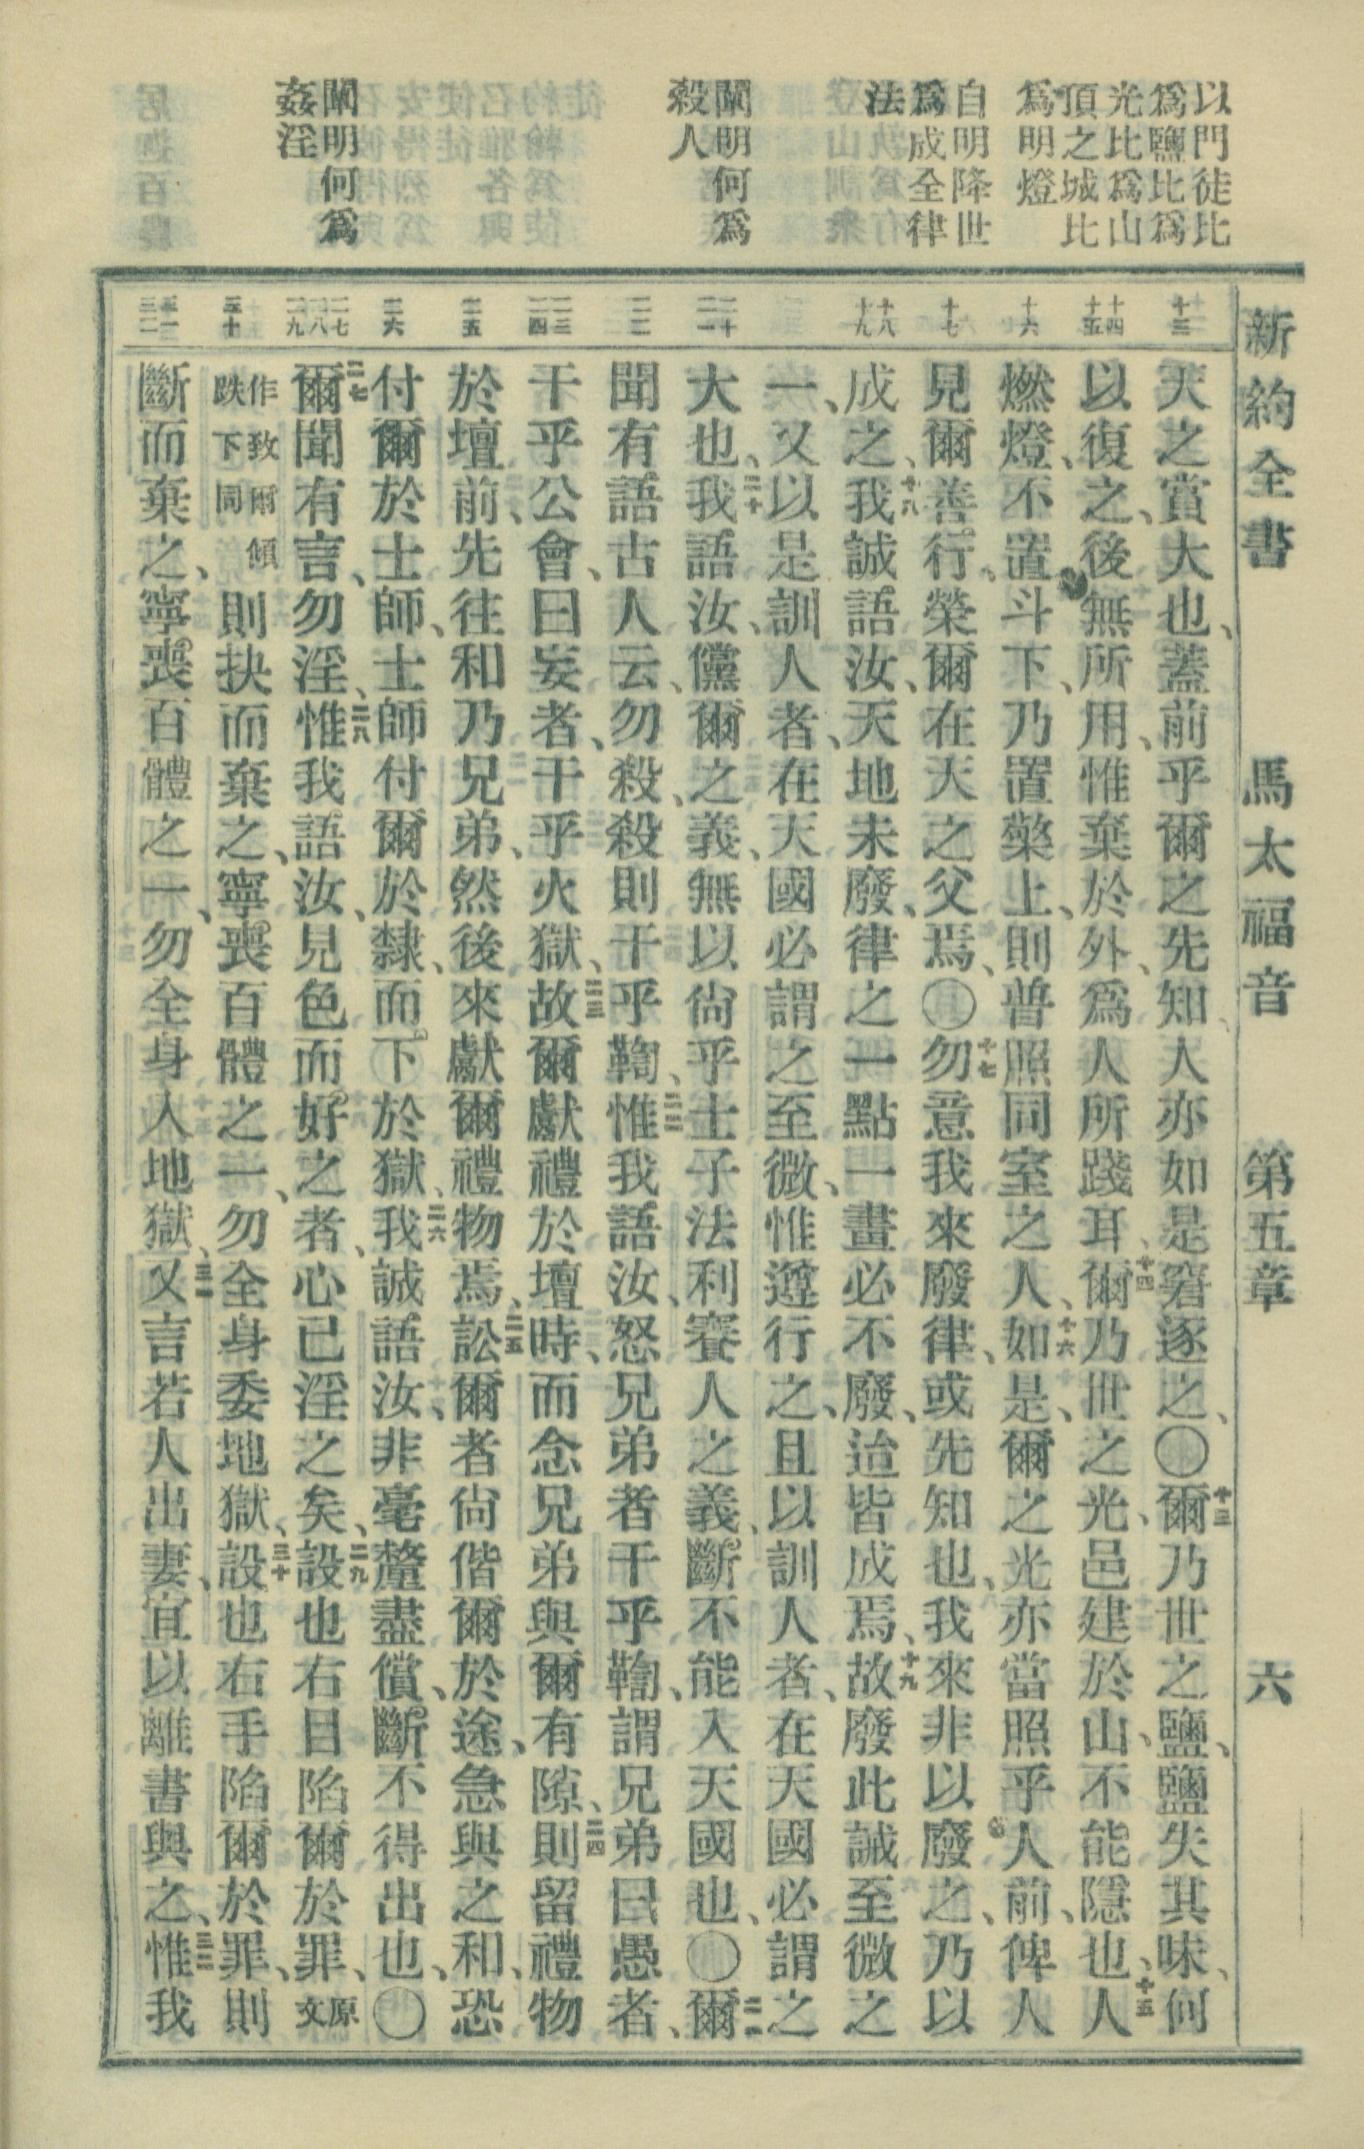 新約全書　馬太福音　第五章　六
以門徒比
爲鹽比爲
光比爲山
頂之城比
爲明燈
自明降世
爲成全律
法
闡明何爲
殺人
闡明何爲
姦淫
十三
十四
十五
十六
十七
十八
十九
二十
二一
二二
二三
二四
二五
二六
二七
二八
二九
三十
三一
三二
天之賞大也、蓋前乎爾之先知、人亦如是窘逐之、〇十三爾乃世之鹽、鹽失其味、何
以復之、後無所用、惟棄於外、爲人所踐耳、十四爾乃世之光、邑建於山、不能隱也、十五人
燃燈、不置斗下、乃置檠上、則普照同室之人、十六如是、爾之光亦當照乎人前、俾人
見爾善行、榮爾在天之父焉、〇十七勿意我來廢律、或先知也、我來非以廢之、乃以
成之、十八我誠語汝、天地未廢、律之一點一畫必不廢、迨皆成焉、十九故廢此誡至微之
一、又以是訓人者、在天國必謂之至微、惟遵行之、且以訓人者、在天國必謂之
大也、二十我語汝、儻爾之義、無以尙乎士子法利賽人之義、斷不能入天國也、〇二一爾
聞有語古人云、勿殺、殺則干乎鞫、二二惟我語汝、怒兄弟者干乎鞫、謂兄弟曰愚者、
干乎公會、曰妄者、干乎火獄、二三故爾獻禮於壇時、而念兄弟與爾有隙、二四則留禮物
於壇前、先往和乃兄弟、然後來獻爾禮物焉、二五訟爾者尙偕爾於途、急與之和、恐
付爾於士師、士師付爾於隸、而下於獄、二六我誠語汝、非毫釐盡償、斷不得出也、〇
二七爾聞有言、勿淫、二八惟我語汝、見色而好之者、心已淫之矣、二九設也右目陷爾於罪、原文
作致爾傾跌下同則抉而棄之、寧喪百體之一、勿全身委地獄、三十設也右手陷爾於罪、則
斷而棄之、寧喪百體之一、勿全身入地獄、三一又言若人出妻、宜以離書與之、三二惟我